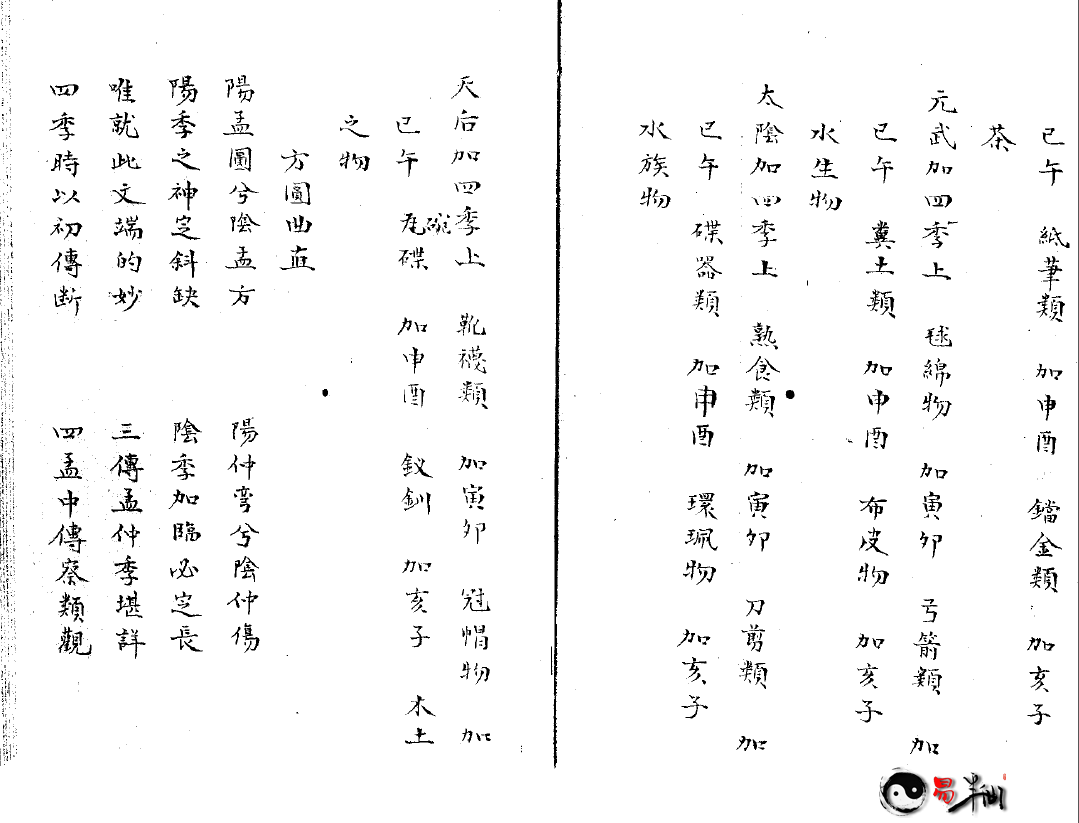 巳午　紙筆類　加申酉　鐺金類　加亥子
茶
元武加四季上　毬綿物　加寅卯　弓箭類　加
巳午　糞土類　加申酉　布皮物　加亥子
水生物
太陰加四季上　熟食類　加寅卯　刀剪類　加
巳午　磼器類　加申酉　環珮物　加亥子
水族物
天后加四季上　靴襪類　加寅卯　冠帽物　加
巳午　瓦碗碟　加申酉　釵釧　加亥子　木土
之物
方圓曲直
陽孟圓兮陰孟方　陽仲彎兮陰仲傷
陽季之神定斜缺　陰季加臨必定長
唯就此文端的妙　三傳孟仲季堪詳
四季時以初傳斷　四孟中傳察類觀
易半仙